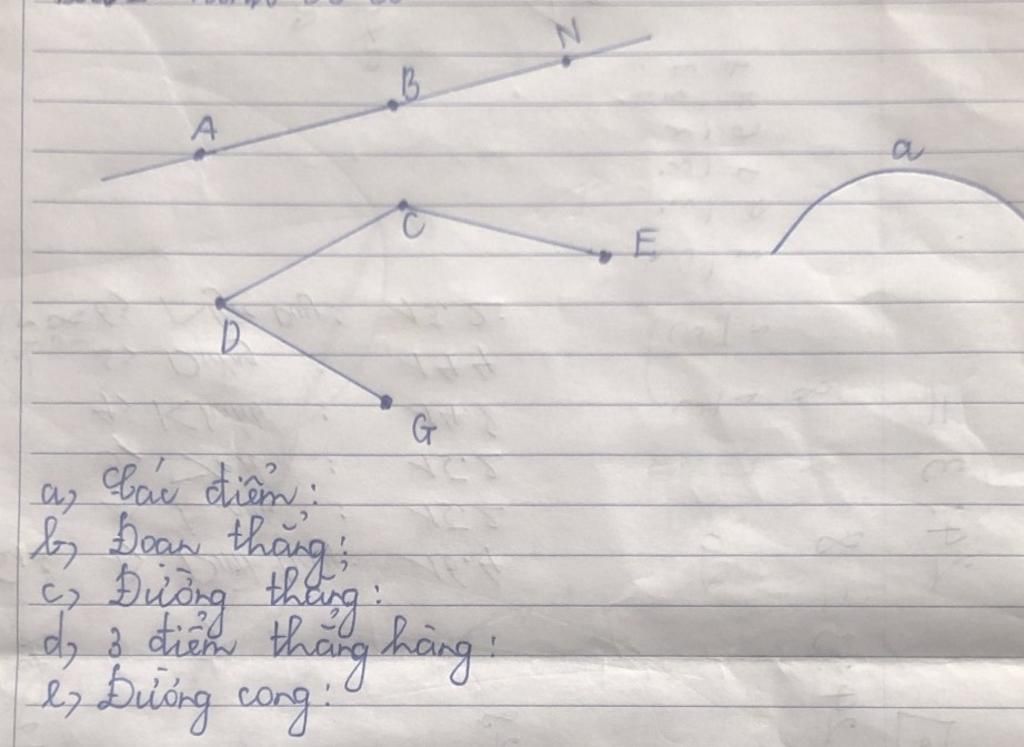 N
B
A
a
C
E
D
G
a, Các điểm:
b, Đoạn thẳng:
c, Đường thẳng:
d, 3 điểm thẳng hàng:
e, Đường cong: